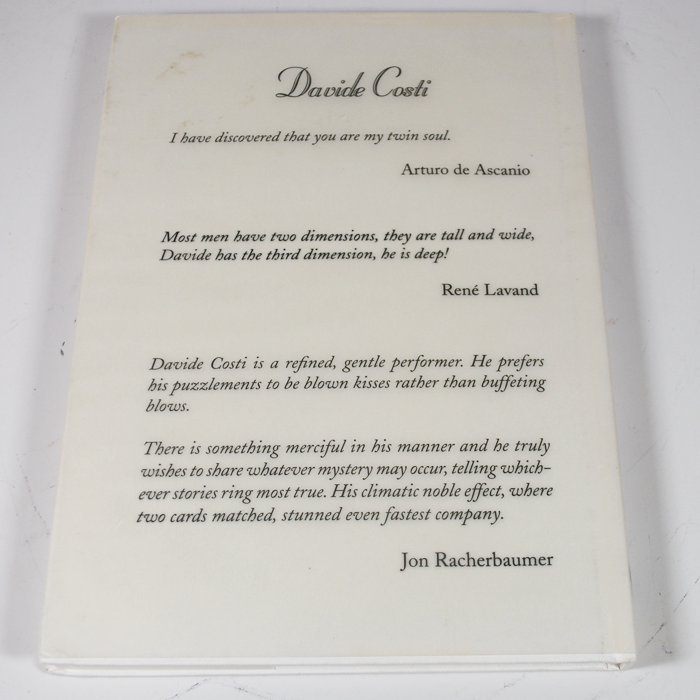 Davide Costi
I have discovered that you are my twin soul.
Arturo de Ascanio
Most men have two dimensions, they are tall and wide,
Davide has the third dimension, he is deep!
René Lavand
Davide Costi is a refined, gentle performer. He prefers
his puzzlements to be blown kisses rather than buffeting
blows.
There is something merciful in his manner and he truly
wishes to share whatever mystery may occur, telling which-
ever stories ring most true. His climatic noble effect, where
two cards matched, stunned even fastest company.
Jon Racherbaumer